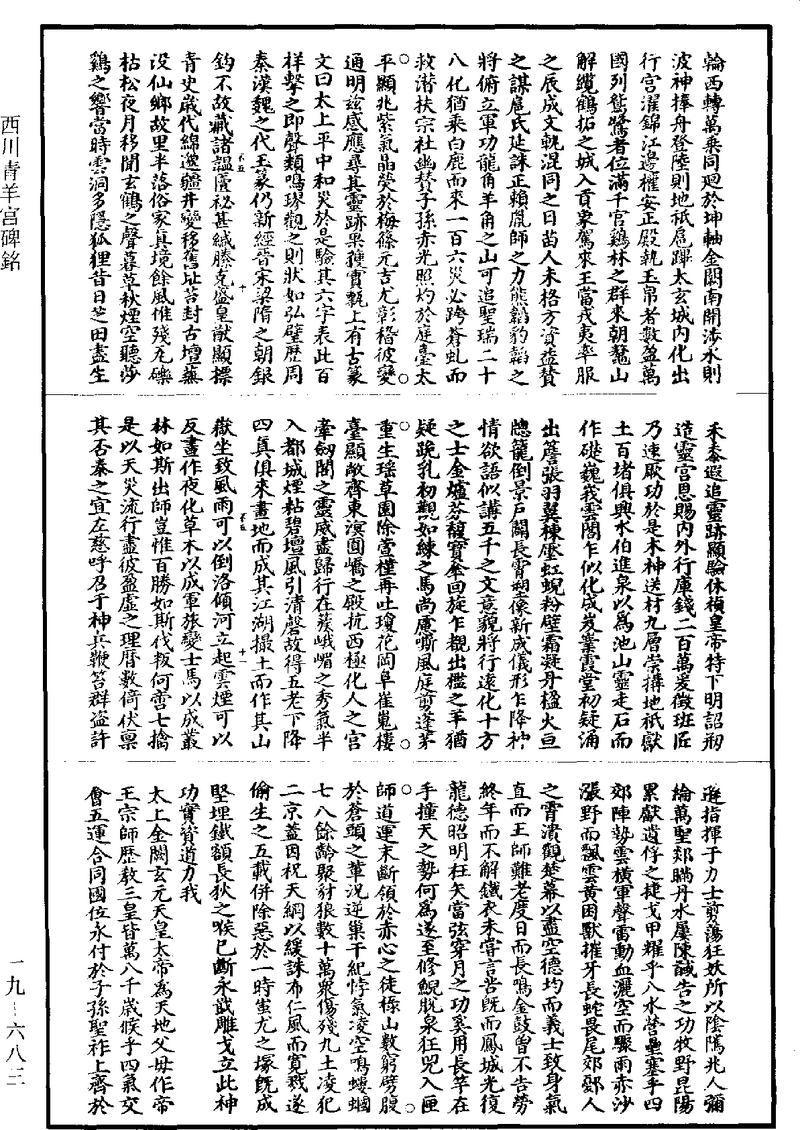 輪西轉萬乘同廻於坤軸金闕南開涉水則
波神捧舟登陸則地祇扈蹕太玄城內化出
行宮濯錦江邊權安正殿執玉帛者數盈萬
國列鴛鷺者位滿千官鷄林之群來朝鼇山
解纜鶴拓之城入貢象駕來王當戎夷率服
之辰成文軌混同之日苗人未格方資益贊
之謀扈氏延誅正賴胤師之力熊韜豹韜之
將俯立軍功龍角羊角之山可追聖瑞二十
八化猶乘白鹿而來一百六災必跨蒼虬而
救潜扶宗社幽贊子孫赤光照灼於庭臺太
平顯兆紫氣晶熒於梅篠元吉尤彰稽彼變
通明兹感應尋其靈跡果獲寶甎上有古篆
文曰太上平中和災於是驗其六字表此百
祥擊之即聲類鳴璆觀之則狀如弘璧歷周
秦漢魏之代玉篆仍新經晉宋梁隋之朝銀
鈎不故藏諸韞匵祕甚緘縢克盛皇猷顯標
青史歲代綿邈疆井變移舊址苔封古壇蕪
没仙鄉故里半落俗家真境餘風惟殘瓦礫
枯松夜月移聞玄鶴之聲暮草秋煙空聽莎
鷄之響當時雲洞多隱狐狸昔日芝田盡生
禾黍遐追靈跡顯驗休禎皇帝特下明詔刱
造靈宮恩賜內外行庫錢二百萬爰徵班匠
乃速厥功於是木神送材九層崇搆地祇獻
土百堵俱興水伯進泉以為池山靈走石而
作礎巍峩雲閣乍似化成岌嶪霞堂初疑涌
出簷張羽翼棟壓虹蜺粉壁霜凝丹楹火亘
牕籠倒景戶闢長霄塑像新成儀形乍降神
情欲語似講五千之文意貌將行遠化十方
之士金爐芬馥寶傘回旋乍覩出檻之羊猶
疑跪乳初觀如練之馬尚膚嘶風庭剪蓬茅
重生瑶草園除當檴再吐瓊花岡阜崔嵬樓
臺顯敞齊東溟圓嶠之殿抗西極化人之宮
牽劒閣之靈威盡歸行在簇峨嵋之秀氣半
入都城煙粘碧壇風引清磬故得五老下降
四真俱來畫地而成其江湖撮土而作其山
嶽坐致風雨可以倒洛傾河立起雲煙可以
反晝作夜化草木以成軍旅變士馬以成叢
林如斯出師豈惟百勝如斯伐叛何啻七擒
是以天災流行盡彼盈虛之理曆數倚伏稟
其否泰之宜左慈呼召于神兵鞭笞群盜許
遜指揮于力士剪蕩狂妖所以陰隲兆人彌
綸萬聖郊瞞丹水屢陳誠告之功牧野昆陽
累獻遺俘之捷戈甲耀乎八水營壘塞乎四
郊陣勢雲橫軍聲雷動血灑空而驟雨赤沙
漲野而飄雲黃困獸摧牙長蛇畏尾郊鄽人
之霄潰觀楚幕以盡空德均而義士致身氣
直而王師難老度日而長鳴金鼓曾不告勞
終年而不解鐵衣未嘗言苦既而鳳城光復
龍德昭明枉矢當弦穿月之功奚用長竿在
手撞天之勢何為遂至修鯢脫泉狂兕入匣
師道運末斷領於赤心之徒祿山數窮劈腹
於蒼頭之輩況逆巢干紀悖氣凌空鳴螻蟈
七八餘齡聚豺狼數十萬衆傷殘九土凌犯
二京蓋因祝天網以緩誅布仁風而寬戮遂
偷生之五載併除惡於一時蚩尤之塚既成
堅埋鐵額長狄之喉已斷永戢雕戈立此神
功實資道力我
太上金闕玄元天皇太帝為天地父母作帝
王宗師歷教三皇皆萬八千歲候乎四氣交
會五運合同國位永付於子孫聖祚上齊於
西川青羊宮碑銘
一九－六八三